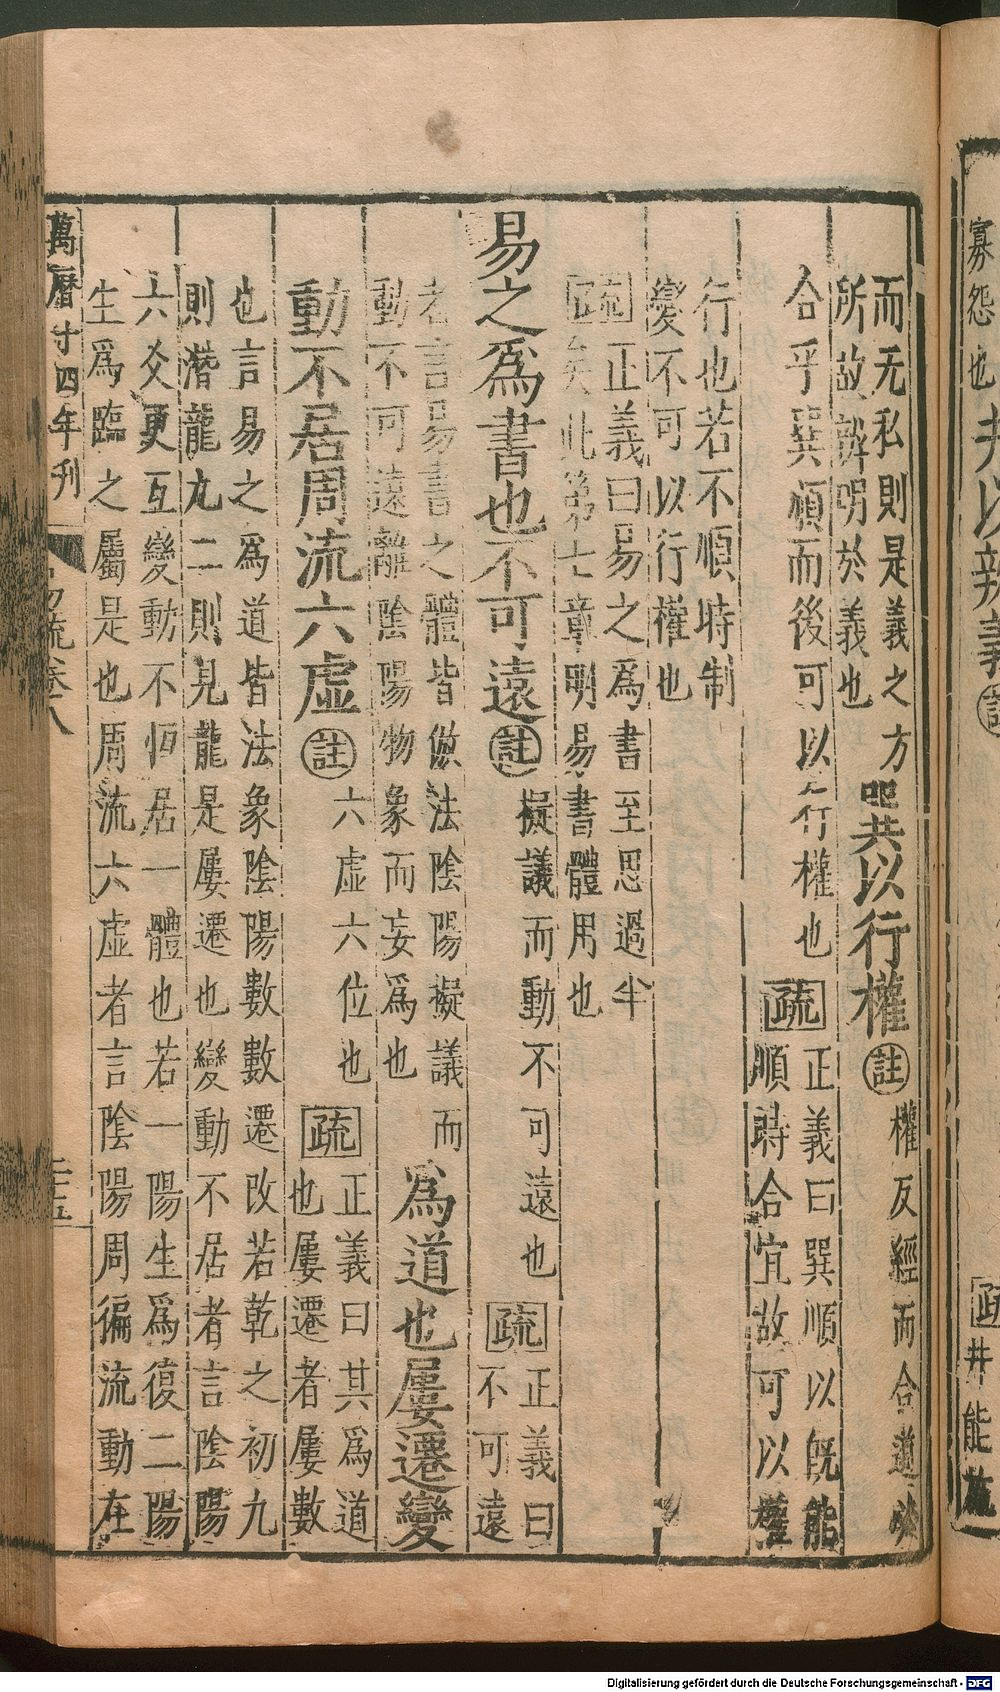 寡怨也井以辯義註
疏井能施
而无私則是義之方
所故辨明於義也
巽以行權註權反經而合道必
合乎巽順而後可以行權也疏
正義曰巽順以既能
順時合宜故可以權
行也若不順時制
變不可以行權也
疏正義曰易之為書至思過半
矣此第七章明易書體用也
易之爲書也不可遠註擬議而動不可遠也疏
正義曰
不可遠
者言易書之體皆倣法陰陽擬議而
動不可遠離陰陽物象而妄爲也
爲道也屢遷變
動不居周流六虛註六虛六位也疏
正義曰其爲道
也屢遷者屢數
也言易之爲道皆法象陰陽數數遷改若乾之初九
則潛龍九二則見龍是屢遷也變動不居者言陰陽
六爻更互變動不恒居一體也若一陽生爲復二陽
生爲臨之屬是也周流六虛者言陰陽周徧流動在
萬曆十四年刊
易疏卷八
二十五
Digitalisierung gefördert durch die Deutsche Forschungsgemeinschaft - DFG